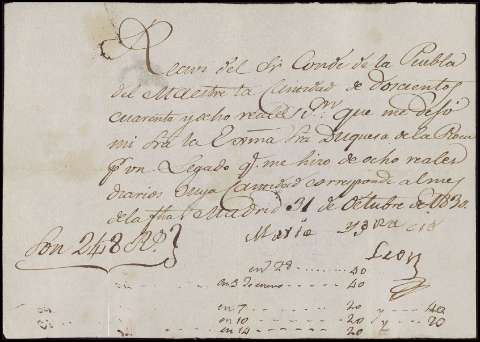 Recivi del Sr Conde de la Puebla
del Maestre la Cantidad de Dorcientos
cuarenta y ocho reales Vn que me dejó
mi Sra la Exma Sra Duquesa de la Roca
por un Legado q. me hizo de ocho reales
diarios Cuya Cantidad corresponde al mes
de la fha Madrid 31 de Octubre de 1830.
Son 248 Rs.
Maria
Leon
en 28 40
en 3 Enero 40
en 7 20 y 40
en 10 20 y 20
en 14 20